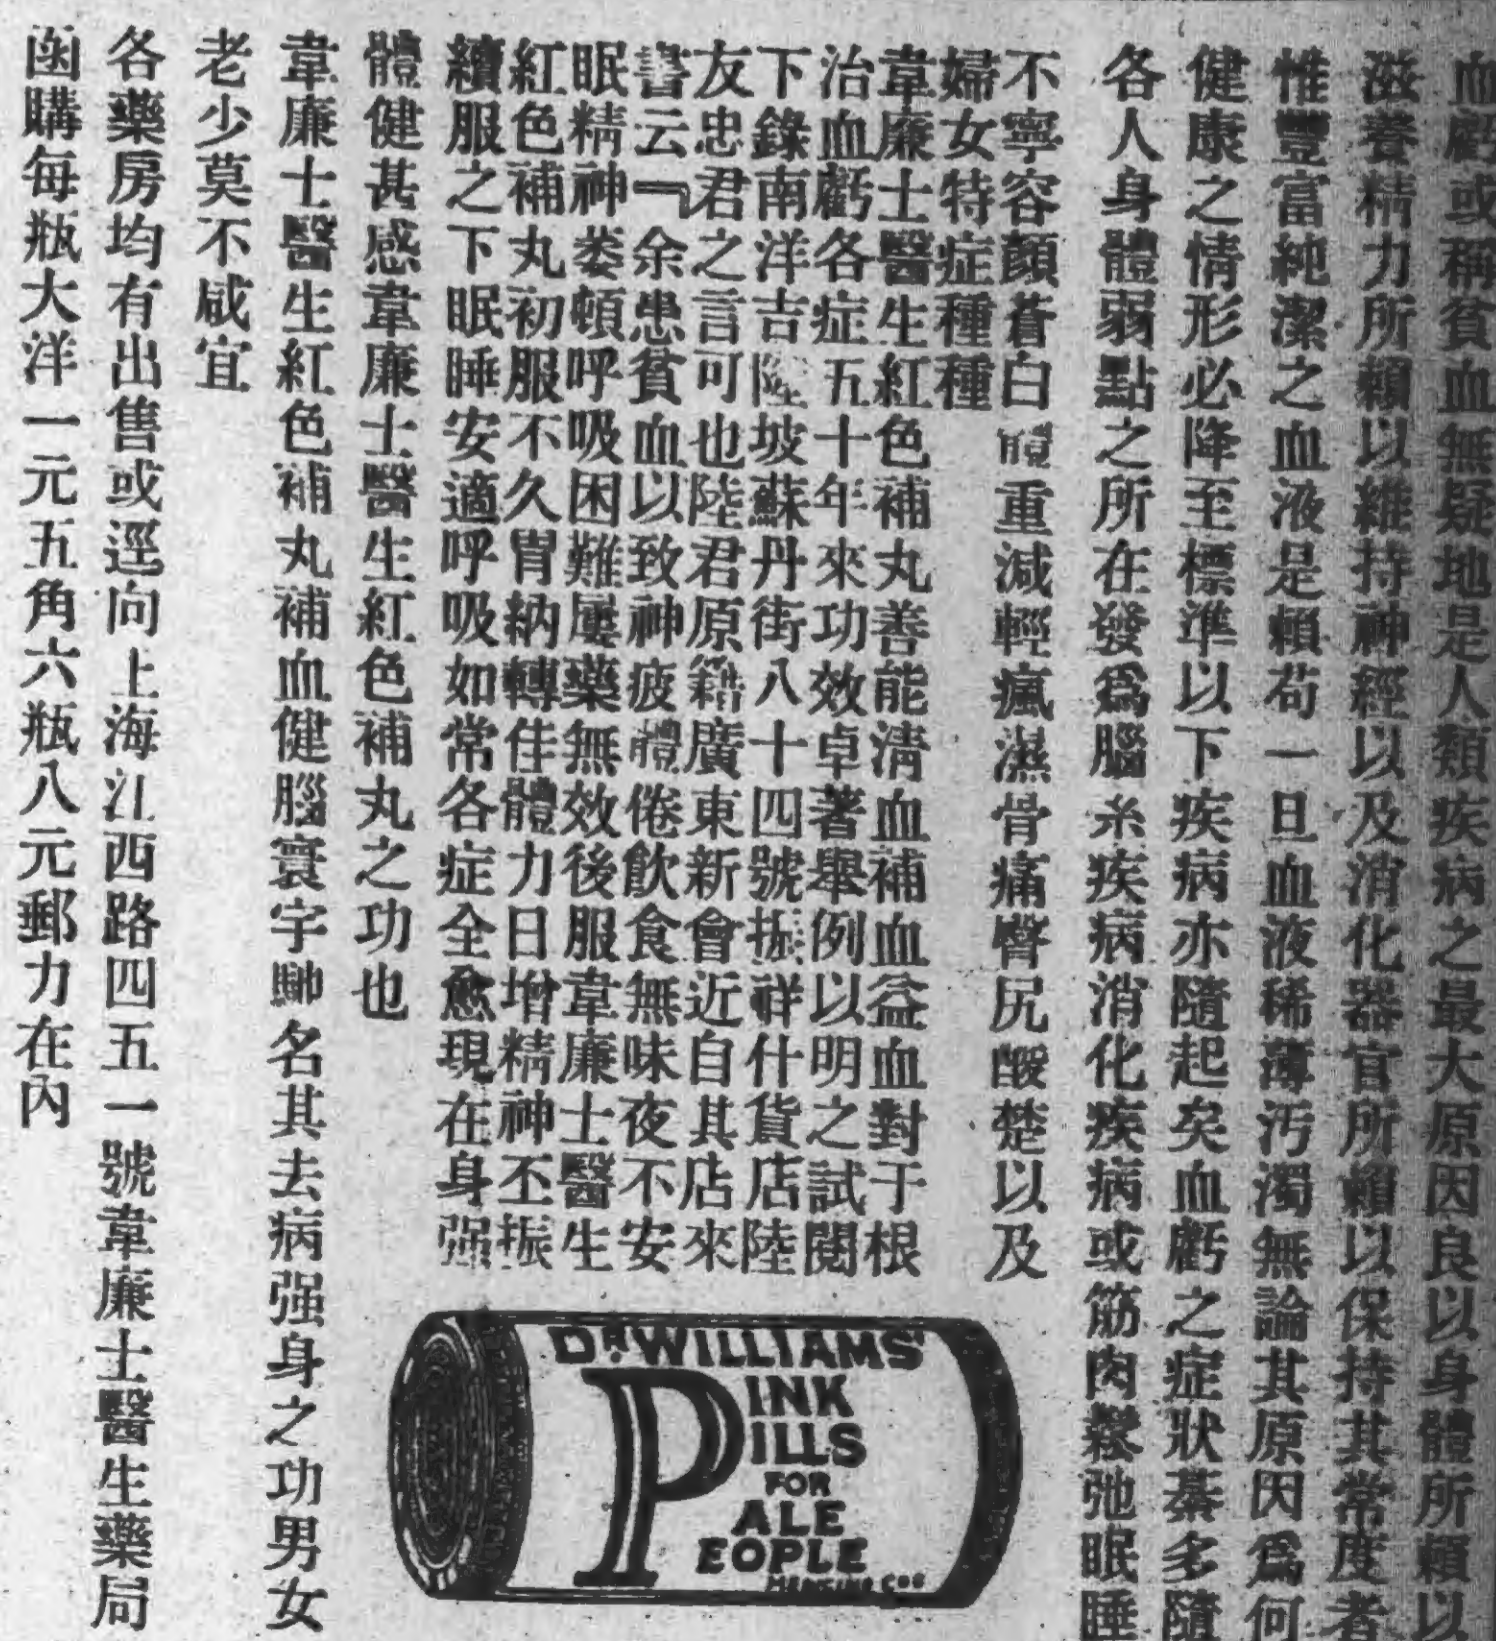 血虧或稱貧血無疑地是人類疾病之最大原因良以身體所賴以
滋養精力所賴以維持神經以及消化器官所賴以保持其常度者
惟豐富純潔之血液是賴苟一旦血液稀薄污濁無論其原因爲何
健康之情形必降至標準以下疾病亦隨起矣血虧之症狀綦多隨
各人身體弱點之所在發爲腦系疾病消化疾病或筋肉鬆弛眠睡
不寧容顏蒼白體重減輕瘋濕骨痛臀尻酸楚以及
婦女特症種種
韋廉士醫生紅色補丸善能清血補血益血對于根
治血虧各症五十年來功效卓著舉例以明之試閱
下錄南洋吉隆坡蘇丹街八十四號振祥什貨店陸
友忠君之言可也陸君原籍廣東新會近自其店來
書云『余患貧血以致神疲體倦飲食無味夜不安
眠精神萎頓呼吸困難屢藥無效後服韋廉士醫生
紅色補丸初服不久胃納轉佳體力日增精神丕振
續服之下眠睡安適呼吸如常各症全愈現在身强
體健甚感韋廉士醫生紅色補丸之功也
韋廉士醫生紅色補丸補血健腦寰宇馳名其去病强身之功男女
老少莫不咸宜
各藥房均有出售或逕向上海江西路四五一號韋廉士醫生藥局
函購每瓶大洋一元五角六瓶八元郵力在內
DR WILLIAMS'
PINK
PILLS
FOR
PALE
PEOPLE
MEDICINE Co